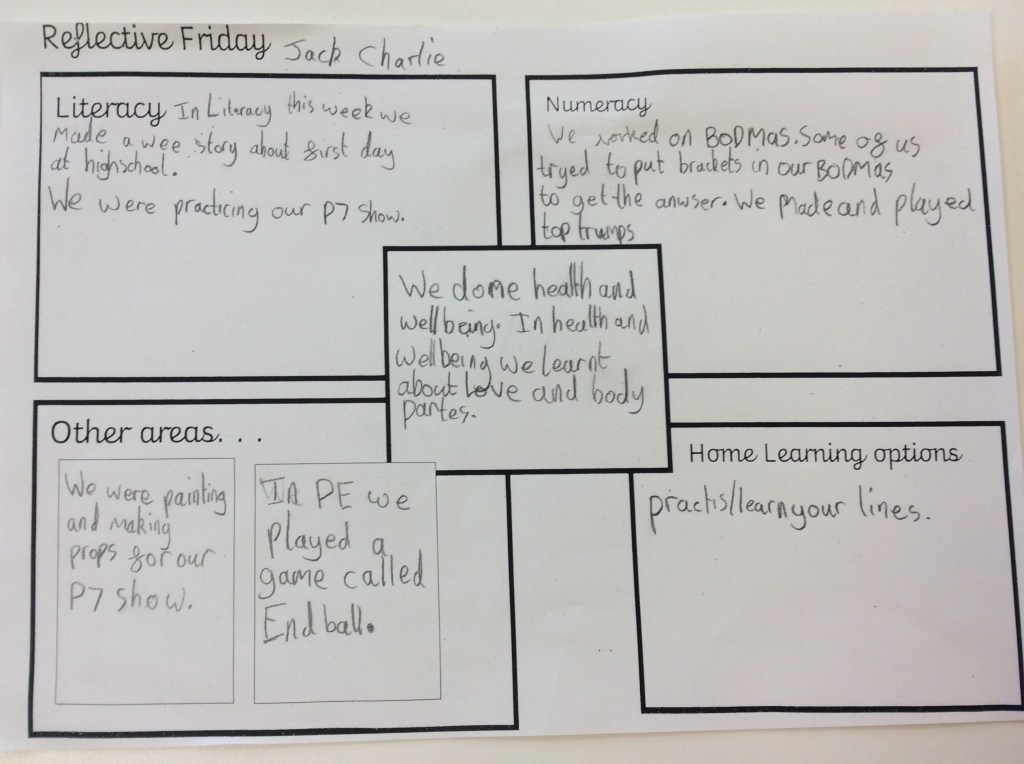 Reflective Friday Jack Charlie
Literacy In Literacy this week we
Made a wee story about first day
at highschool.
We were practicing our P7 show.
Numeracy
We worked on BODMAS. Some of us
tryed to put brackets in our BODMAS
to get the anwser. We Made and played
top trumps
We dome health and
wellbeing. In health and
wellbeing we learnt
about Love and body
partes.
Other areas. . .
We were painting
and making
props for our
P7 show.
In PE we
Played a
game called
End ball.
Home Learning options
practis/learn your lines.